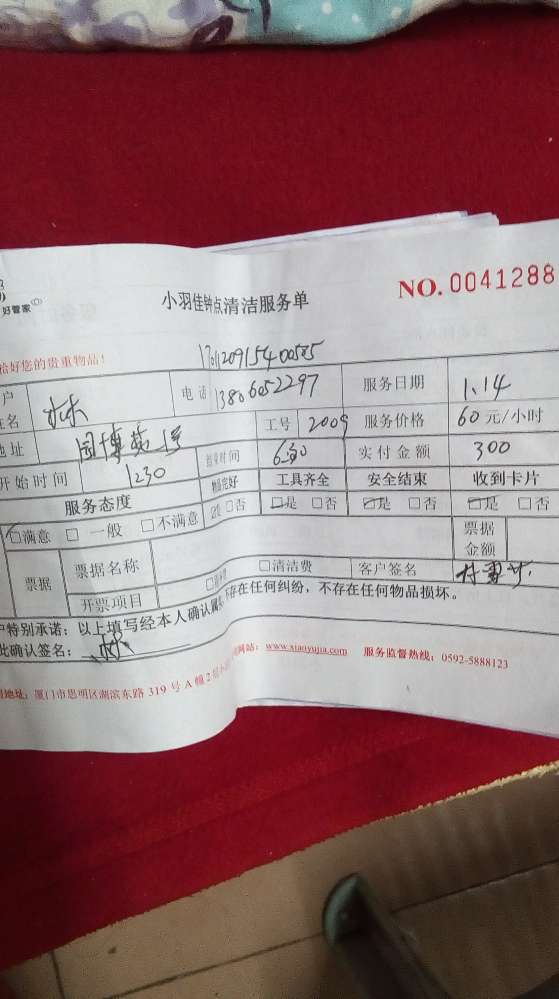 好管家
小羽佳钟点清洁服务单
NO. 0041288
恰好您的贵重物品！
电话 13806052297 服务日期 1.14
姓名 林
工号 2009 服务价格 60元/小时
地址 园博
开始时间 1230 结束时间 实付金额 300
服务态度 物品完好 工具齐全 安全结束 收到卡片
□满意 □ 一般 □不满意 □是 □否 □是 □否 □是 □否 □是 □否
票据 票据名称 票据金额
开票项目 □清洁费 客户签名
户特别承诺：以上填写经本人确认属实，不存在任何纠纷，不存在任何物品损坏。
此确认签名：
地址：厦门市思明区湖滨东路 319 号 A 幢 2 网站：www.xiaoyujia.com 服务监督热线：0592-5888123